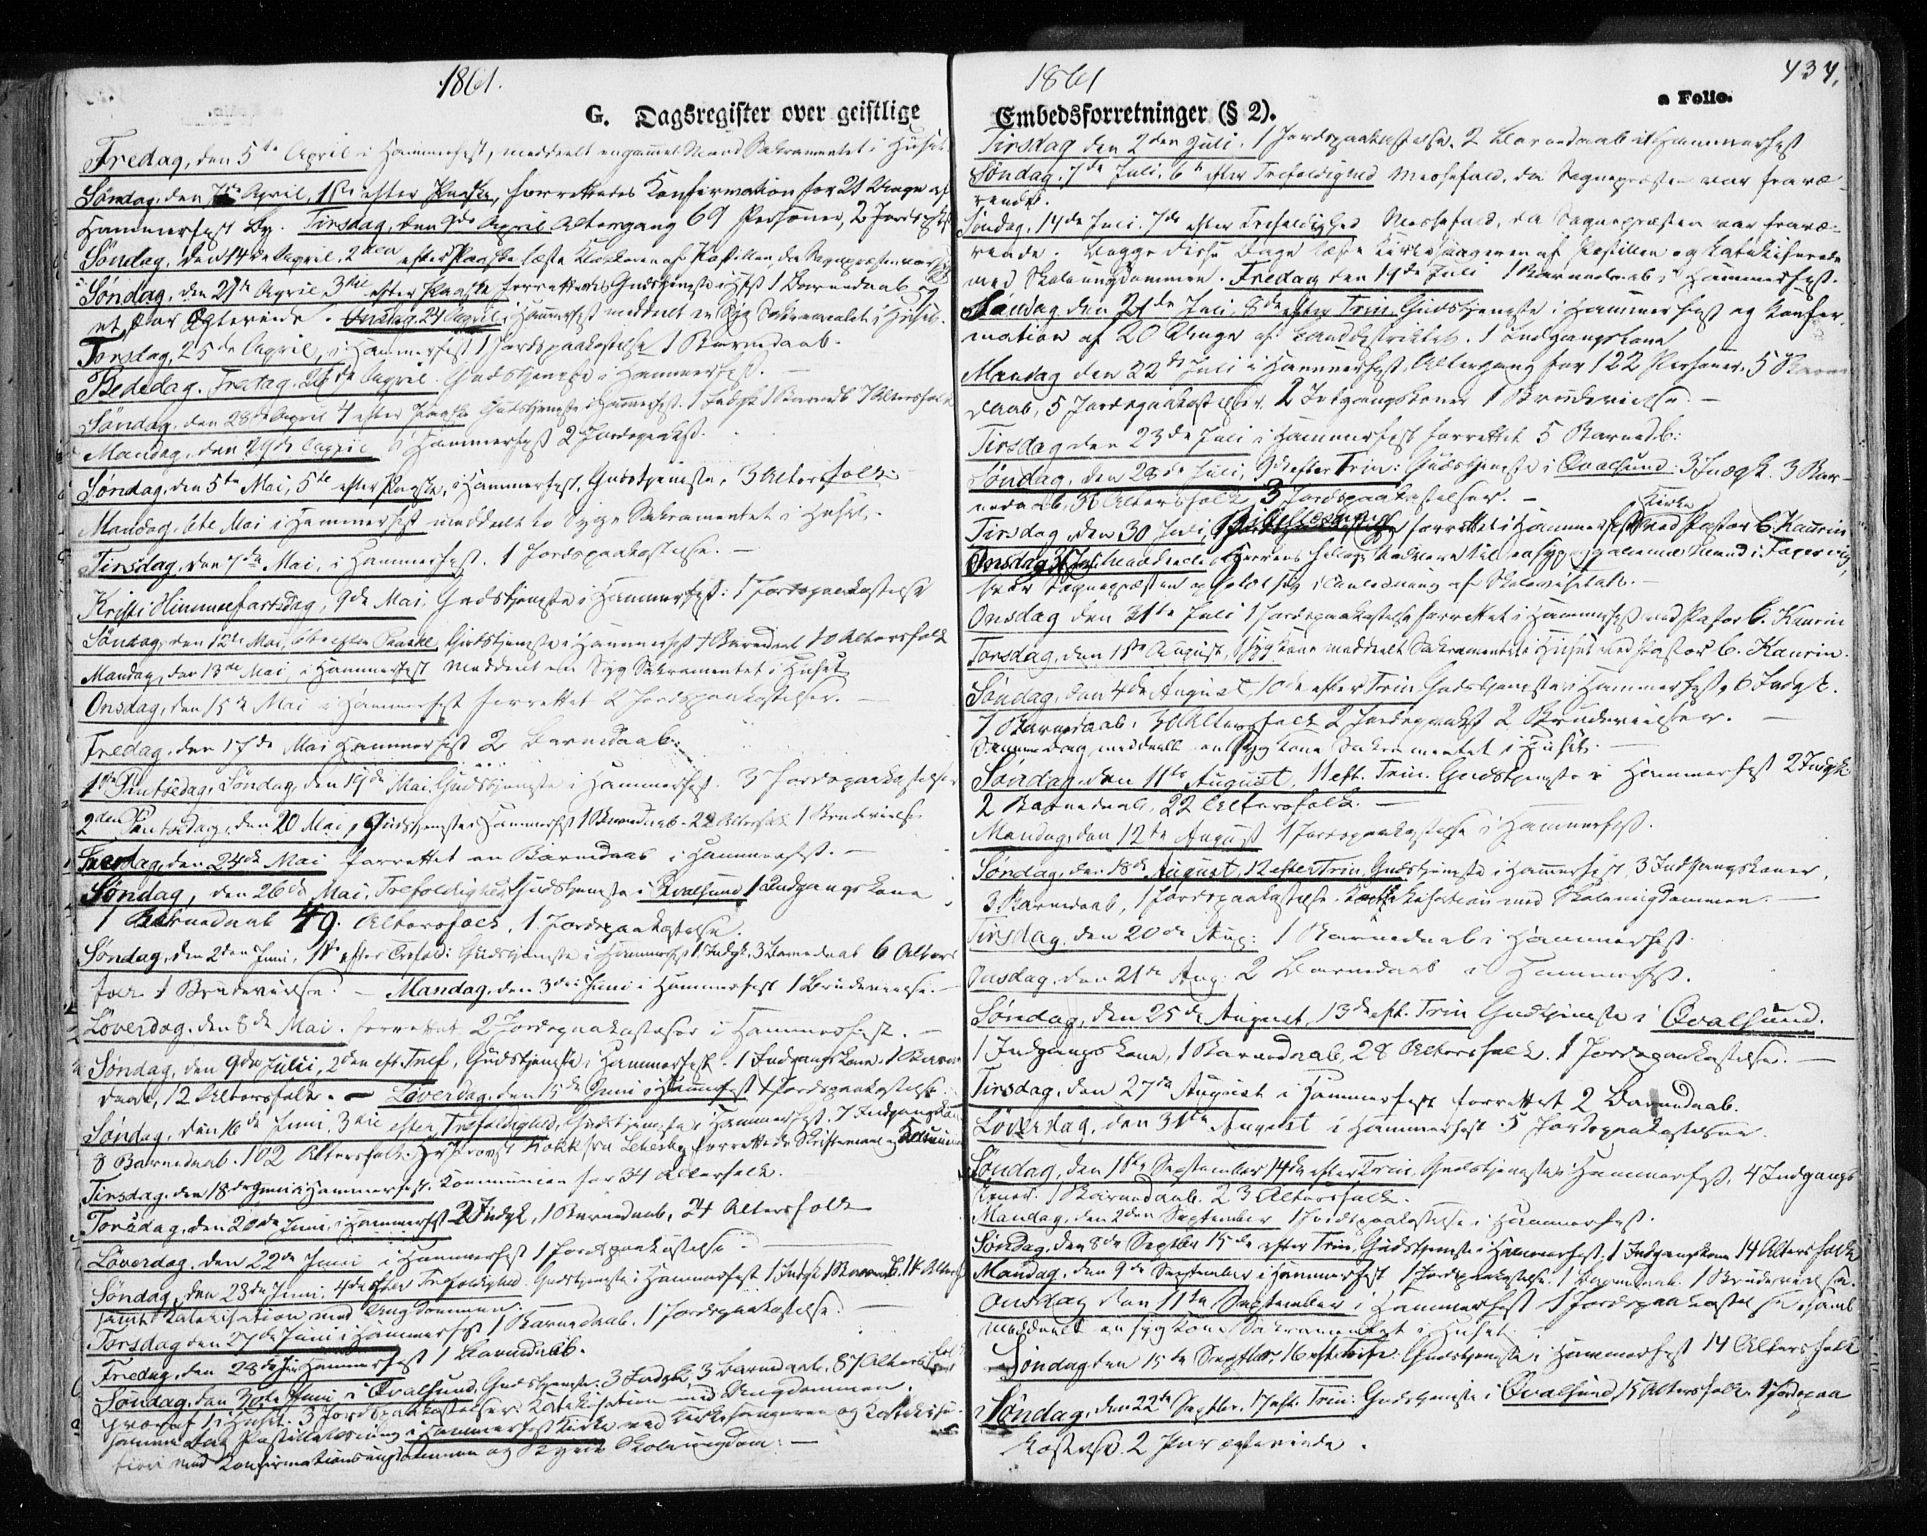 1861.
G. Dagsregister over geistlige
Fredag, den 5te April i Hammerfest, meddeelt en gammel Mand Sakramentet i Huset
Søndag, den 7de April, 1ste efter Paaske, forrettedes Konfirmation for 21 Unge af
Hammerfest By. Tirsdag, den 9de April Altergang 69 Personer, 2 Jordsp
Søndag, den 14de April, 2den efter Paaske læste Klokkeren af Postillen, da Sognepræsten var
Søndag, den 21de April 3die efter Paaske forrettedes Gudstjeneste i Hfest 1 Barnedaab og
et Par Ægteviede. Onsdag 24 April i Hammerfest meddeelt en Syg Sakramentet i Huset.
Torsdag, 25de April, i Hammerfest 1 Jordspaakastelse 1 Barnedaab.
Bededag. Fredag 26de April. Gudstjeneste i Hammerfest.
Søndag, den 28de April 4 efter Paaske Gudstjeneste i Hammerfest. 1 Indgk 1 Barnedb 7 Altersfolk
Mandag, den 29de April i Hammerfest 2 Jordspaakst.
Søndag, den 5te Mai, 5te efter Paaske, i Hammerfest, Gudstjeneste, 3 Altersfolk
Mandag, 6te Mai i Hammerfest meddeelt to Syge Sakramentet i Huset.
Tirsdag, den 7de Mai, i Hammerfest. 1 Jordspaakastelse. —
Kristi Himmelfartsdag, 9de Mai, Gudstjeneste i Hammerfest: 1 Jordspaakastelse
Søndag, den 12te Mai, 6te efter Paaske, Gudstjeneste i Hammerfest 1 Barnedaab 10 Altersfolk
Mandag, den 13de Mai, i Hammerfest meddeelt en Syg Sakramentet i Huset
Onsdag, den 15de Mai i Hammerfest forrettet 2 Jordspaakastelser. —
Fredag, den 17de Mai Hammerfest 2 Barnedaab.
1ste Pintsedag, Søndag, den 19de Mai. Gudstjeneste i Hammerfest. 3 Jordspaakastelser
2den Pintsedag, den 20 Mai, Gudstjeneste i Hammerfest 1 Barnedaab. 22 Altersfolk 1 Brudevielse
Fredag, den 24de Mai forrettet en Barnedaab i Hammerfest. —
Søndag, den 26de Mai, Trefoldighed, Gudstjeneste i Qvalsund 1 Indgangskone
1 Barnedaab 49 Altersfolk, 1 Jordspaakastelse.
Søndag, den 2den Juni, 1ste efter Trefold: Gudstjeneste i Hammerfest 1 Indgk, 3 Barnedaab 6 Alters
folk 1 Brudevielse. — Mandag, den 3die Juni i Hammerfest 1 Brudevielse. —
Løverdag, den 8de Mai. forrettet 2 Jordspaakastelser i Hammerfest. —
Søndag, den 9de Juni, 2den eft Tref, Gudstjeneste i Hammerfest. 1 Indgangskone. 1 Barne
daab, 12 Altersfolk. — Løverdag, den 15de Juni i Hammerfest 1 Jordspaakastelse
Søndag, den 16de Juni, 3die efter Trefoldighed, Gudstjeneste i Hammerfest. 7 Indgangskon
8 Barnedaab. 102 Altersfolk. Hr Provst fra Lebesby forrettede Skriftemaal og
Tirsdag, den 18de Juni i Hammerfest. Kommunion for 34 Altersfolk.
Torsdag, den 20de Juni, i Hammerfest 2 Indgk, 1 Barnedaab, 24 Altersfolk
Løverdag, den 22de Juni i Hammerfest 1 Jordspaakastelse.
Søndag, den 23de Juni, 4de efter Trefoldighed. Gudstjeneste i Hammerfest 1 Indgk 1 Barned
samt Katekisation med Ungdommen.
Torsdag den 27de Juni i Hammerfest 1 Barnedaab. 1 Jordspaakastelse.
Fredag, den 28de Juni Hammerfest 1 Barnedaab.
Søndag, den 30te Juni i Qvalsund, Gudstjeneste. 3 Indgk, 3 Barnedaab, 87 Altersfolk
i Huset. 3 Jordspaakastelser. Katekisation med Ungdommen.
samme Dag Postillelæsning i Hammerfest Kirke ved Kirkesangeren og Katekisa-
tion med Konfirmationsungdommen og Skoleungdom: —
1861
434.
a Folio.
Embedsforretninger (§ 2).
Tirsdag den 2den Juli. 1 Jordspaakastelse. 2 Barnedaab i Hammerfest
Søndag, 7de Juli. 6te efter Trefoldighed Messefald, da Sognepræsten var fravæ-
rende.
Søndag, 14de Juli. 7de efter Trefoldighed Messefald, da Sognepræsten var fravæ-
rende. Begge disse Dage læste Kirkesangeren af Postillen og katekiserede
med Skoleungdommen. Fredag den 19de Juli 1 Barnedaab i Hammerfest.
Søndag den 21de Juli. 8de efter Trin. Gudstjeneste i Hammerfest og Konfir-
mation af 20 Unge af Landdistriktet. 1 Indgangskone
Mandag den 22de Juli i Hammerfest Altergang for 122 Personer. 5 Barne
daab, 5 Jordspaakastelser, 2 Indgangskoner 1 Brudevielse. —
Tirsdag den 23de Juli i Hammerfest forrettet 5 Barnedb:
Søndag, den 28de Juli, 9de efter Trin: Gudstjeneste i Qvalsund: 3 Indgk. 3 Bar-
nedaab, 36 Altersfolk, 3 Jordspaakastelser. —
Tirsdag, den 30 Juli, forrettet i Hammerfest Kirke ved Pastor C. Kaurin
Onsdag, Herrens hellige Nadvere til en syg gammel Mand i
hvor Sognepræsten opholdt sig i Anledning af Skolevisitats. —
Onsdag den 31te Juli 1 Jordspaakastelse forrettet i Hammerfest ved Pastor C. Kaurin
Torsdag, den 1ste August, 1 Sygkone meddeelt Sakramentet i Huset ved Pastor C. Kaurin.
Søndag, den 4de August, 10de efter Trin Gudstjeneste i Hammerfest, 6 Indgk.
7 Barnedaab. 30 Altersfolk 2 Jordspaakst 2 Brudevielser. —
Samme Dag meddeelt en Sygkone Sakramentet i Huset. —
Søndag, den 11te August, 11 eft. Trin. Gudstjeneste i Hammerfest 2 Indgk
2 Barnedaab, 22 Altersfolk. —
Mandag, den 12te August 1 Jordspaakastelse i Hammerfest.
Søndag, den 18de August, 12 efter Trin. Gudstjeneste i Hammerfest, 3 Indgangskoner,
3 Barnedaab, 1 Jordspaakastelse. Katekisation med Skoleungdommen. —
Tirsdag, den 20de Aug: 1 Barnedaab i Hammerfest.
Onsdag, den 21de Aug: 2 Barnedaab i Hammerfest.
Søndag, den 25de August, 13de eft. Trin Gudstjeneste i Qvalsund.
1 Indgangskone, 1 Barnedaab, 28 Altersfolk. 1 Jordspaakastelse. —
Tirsdag, den 27de August i Hammerfest forrettet 2 Barnedaab.
Løverdag, den 31te August i Hammerfest 5 Jordspaakastelser.
Søndag, den 1ste September 14de efter Trin. Gudstjeneste i Hammerfest, 4 Indgangs
koner. 1 Barnedaab. 23 Altersfolk.
Mandag, den 2den September 1 Jordspaakastelse i Hammerfest.
Søndag, den 8de Septbr 15de efter Trin. Gudstjeneste i Hammerfest, 1 Indgangskone 14 Altersfolk
Mandag, den 9de September i Hammerfest 1 Jordspaakastelse. 1 Barnedaab. 1 Brudevielse.
Onsdag den 11te September i Hammerfest 1 Jordspaakastelse, samt
meddeelt en Syg Kone Sakramentet i Huset.
Søndag den 15de Septbr. 16 eft Trin: Gudstjeneste i Hammerfest 14 Altersfolk
Søndag, den 22de Septbr. 17 eft. Trin: Gudstjeneste i Qvalsund, 15 Altersfolk. 1 Jordspaa
kastelse. 2 Par ægteviede.